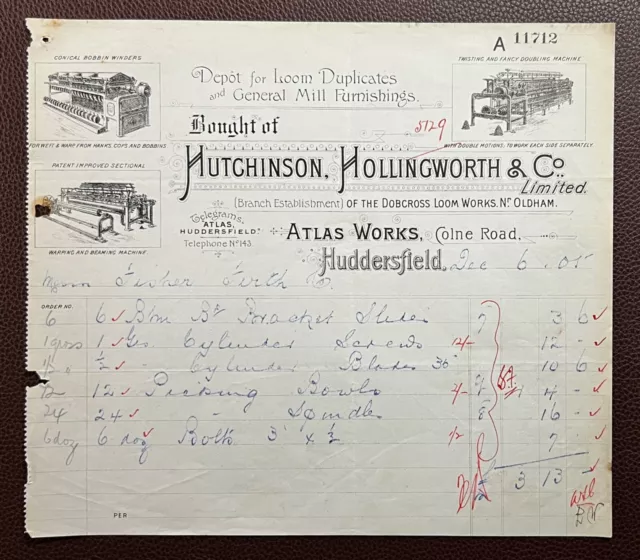 A 11712
CONICAL BOBBIN WINDERS
FOR WEFT & WARP FROM HANKS, COPS AND BOBBINS.
Depôt for Loom Duplicates
and General Mill Furnishings.
TWISTING AND FANCY DOUBLING MACHINE
WITH DOUBLE MOTIONS, TO WORK EACH SIDE SEPARATELY
Bought of
5129
HUTCHINSON, HOLLINGWORTH & Co.
Limited.
PATENT IMPROVED SECTIONAL
WARPING AND BEAMING MACHINE
(Branch Establishment) OF THE DOBCROSS LOOM WORKS, Nr OLDHAM.
Telegrams,
ATLAS,
HUDDERSFIELD.
Telephone No 143.
ATLAS WORKS, Colne Road,
Huddersfield, Dec 6 05
Messrs Fisher Firth & Co
ORDER NO.
6 6 Btm Bracket Slides 7 3 6
1 gross 1 Gs Cylinder Screws 12 -
½ - Cylinder Blades 36" 10 6
12 12 Picking Bowls 4/- 4 -
24 24 - Spindles 8 16 -
6 doz 6 doz Bolts 3 x ½ 1/2 7 -
3 13 -
PER